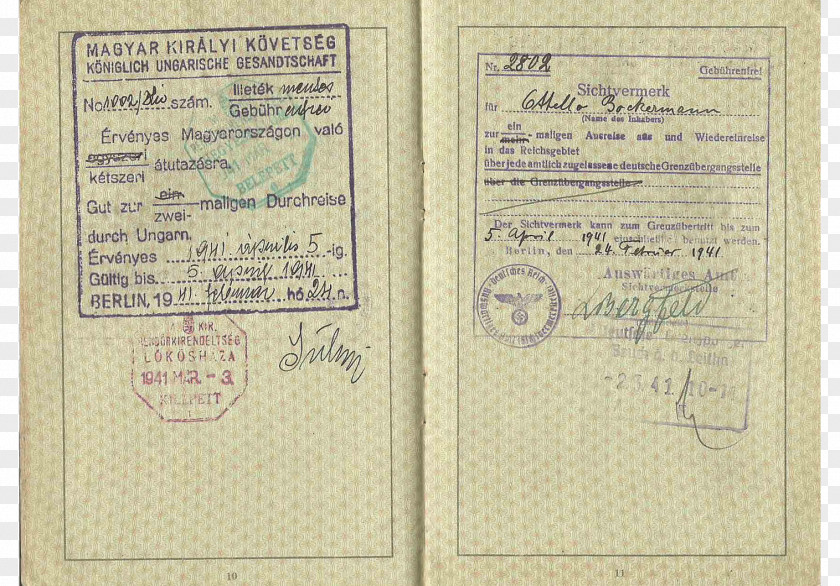 MAGYAR KIRÁLYI KÖVETSÉG
KÖNIGLICH UNGARISCHE GESANDTSCHAFT
No 1002/ szám. Illeték mentes
Gebühr
Érvényes Magyarországon való
egyszeri
kétszeri átutazásra.
Gut zur ein-
zwei- maligen Durchreise
durch Ungarn.
Érvényes 1941. április 5 -ig.
Gültig bis 5. 1941.
BERLIN, 1941. február hó 24 n.
KIR.
LŐKÖSHÁZA
1941 MÁR. - 3.
KILÉPETT
BELÉPETT
10
Nr. 2802 Gebührenfrei
Sichtvermerk
für Ottello Bockermann
(Name des Inhabers)
zur ein
mehr- maligen Ausreise aus und Wiedereinreise
in das Reichsgebiet
über jede amtlich zugelassene deutsche Grenzübergangsstelle
über die Grenzübergangsstelle
Der Sichtvermerk kann zum Grenzübertritt bis zum
5. April 1941 einschließlich benutzt werden.
Berlin, den 24. Februar 1941.
Auswärtiges Amt
Sichtvermerkstelle
Deutsches Reich
Bruck a. d. Leitha
- 2.3.41. 10-11
11